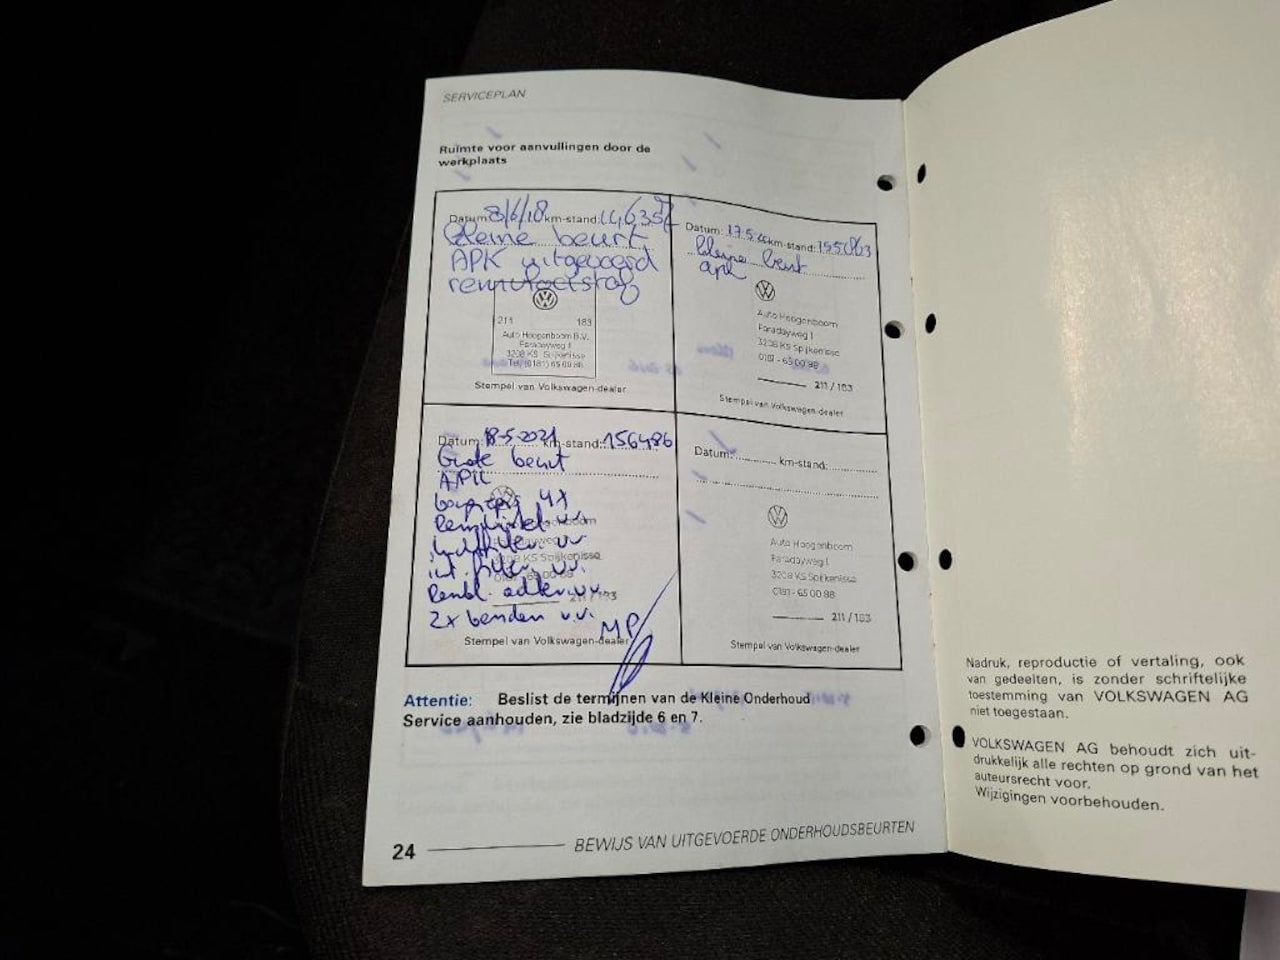 SERVICEPLAN
Ruimte voor aanvullingen door de
werkplaats
Datum: 8/6/18 km-stand:
Kleine beurt
APK uitgevoerd
remvloeistof
211 183
Auto Hoogenboom B.V.
Faradayweg 1
3208 KS Spijkenisse
Tel. (0181) 65 00 88
Stempel van Volkswagen-dealer
Datum: 17.5 km-stand:
Kleine beurt
apk
Auto Hoogenboom
Faradayweg 1
3208 KS Spijkenisse
0181 - 65 00 88
211 / 183
Stempel van Volkswagen-dealer
Datum: 18-5-2021 km-stand: 156486
Grote beurt
APK
bougies 4x
Remvloeistof v.v.
luchtfilter v.v.
int. filter v.v.
2x banden v.v.
MP
Stempel van Volkswagen-dealer
Datum: km-stand:
Auto Hoogenboom
Faradayweg 1
3208 KS Spijkenisse
0181 - 65 00 88
211 / 183
Stempel van Volkswagen-dealer
Attentie: Beslist de termijnen van de Kleine Onderhoud
Service aanhouden, zie bladzijde 6 en 7.
24 BEWIJS VAN UITGEVOERDE ONDERHOUDSBEURTEN
Nadruk, reproductie of vertaling, ook
van gedeelten, is zonder schriftelijke
toestemming van VOLKSWAGEN AG
niet toegestaan.
VOLKSWAGEN AG behoudt zich uit-
drukkelijk alle rechten op grond van het
auteursrecht voor.
Wijzigingen voorbehouden.